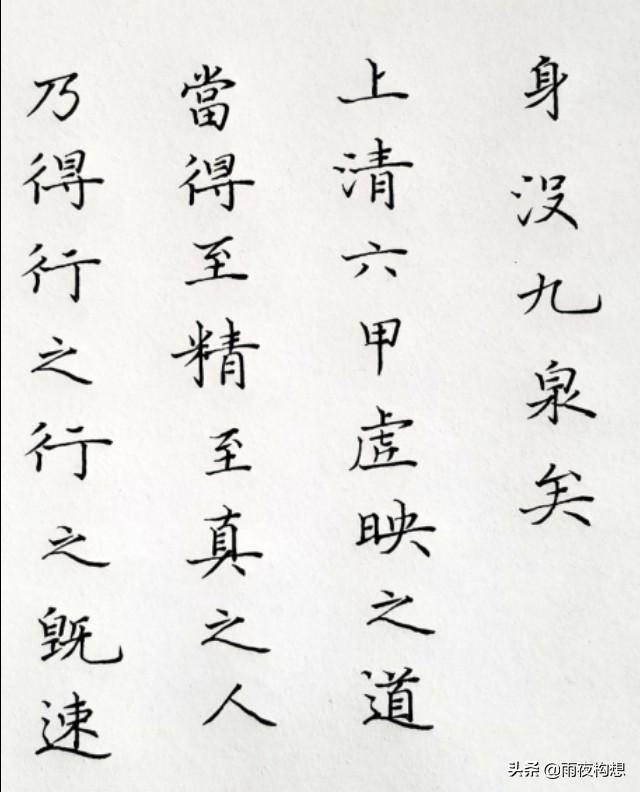 身没九泉矣
上清六甲虚映之道
當得至精至真之人
乃得行之行之既速
头条 @雨夜构想